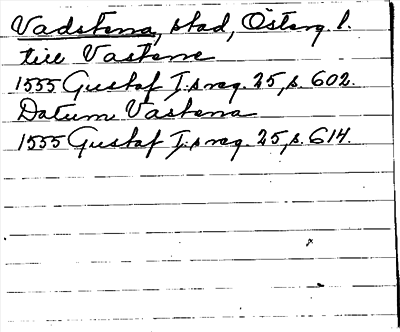 Vadstena, stad, Österg. l.
till Vastene
1555 Gustaf I:s reg. 25, s. 602.
Datum Vastena
1555 Gustaf I:s reg. 25, s. 614.